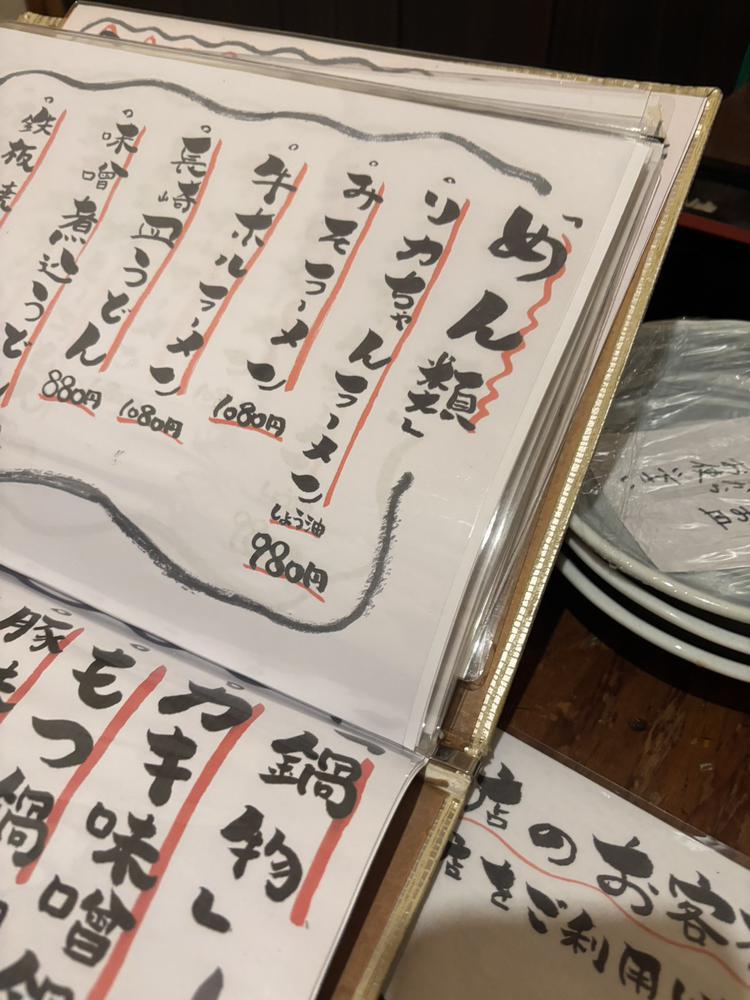 「めん類」
リカちゃんラーメン
みそラーメン しょう油 980円
牛ホルラーメン 1080円
長崎皿うどん 1080円
味噌煮込うどん 880円
鉄板焼うどん
「鍋物」
カキ味噌鍋
もつ鍋
豚
店のお客
店をご利用